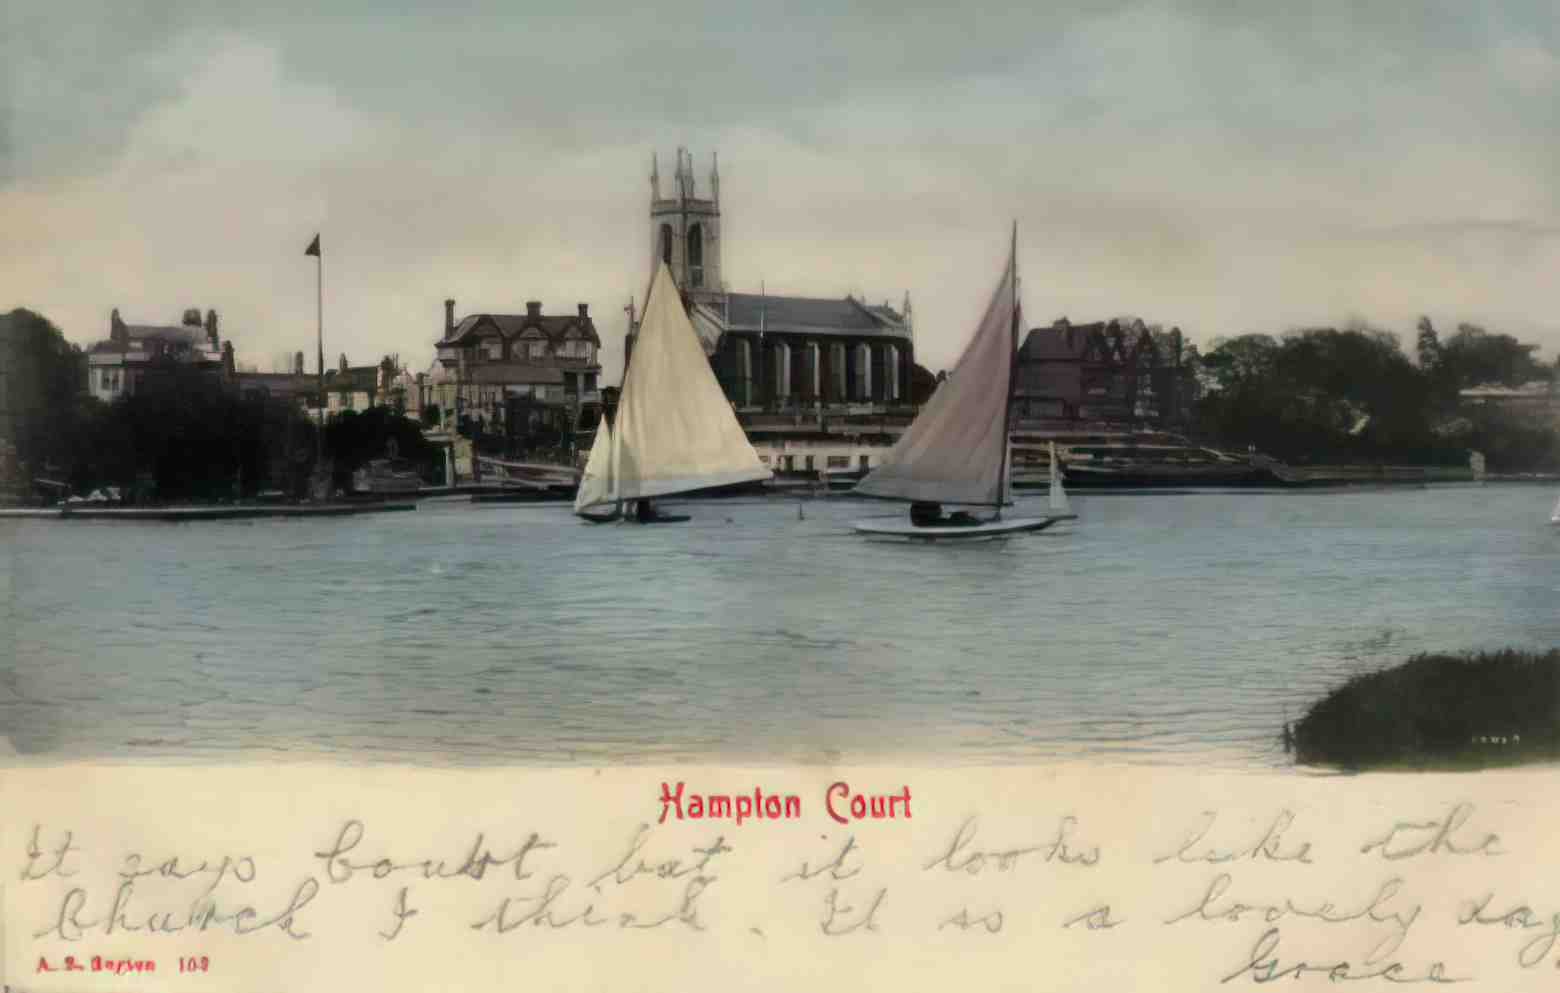 Hampton Court
It says Court but it looks like the
Church I think. It is a lovely day
Grace
A. 108